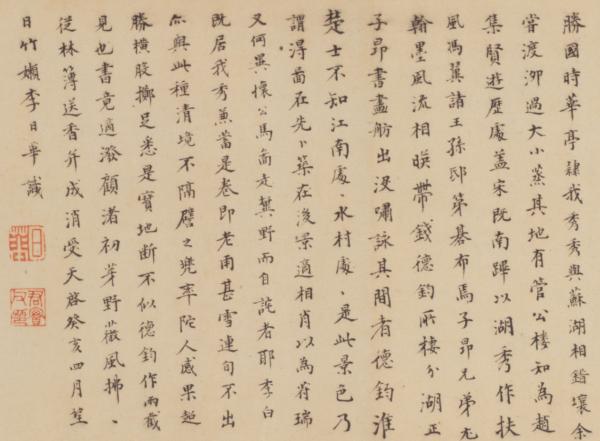 勝國時華亭隸我秀秀與蘇湖相錯壤余
嘗渡泖過大小蒸其地有管公樓知為趙
集賢遊歷處蓋宋既南蹕以湖秀作扶
風馮翼諸王孫邸第碁布馬子昂兄弟尤
翰墨風流相暎帶錢德鈞所棲分湖正
子昂書畫舫出沒嘯詠其間者德鈞淮
楚士不知江南處、水村處、是此景色乃
謂淂啚在先卜築在後景適相肖以為符瑞
又何異懷公馬啚走冀野而自詫者耶李白
既居我秀兼蓄是卷即老甫甚雪連旬不出
亦與此種清境不隔譬之兜率陀人威果超
勝橫股擲足悉是寶地斷不似德鈞作兩截
見也書竟適潑顧渚初芽野薇風拂、
從林薄送香并成消受天啓癸亥四月望
日竹嬾李日華識
日華